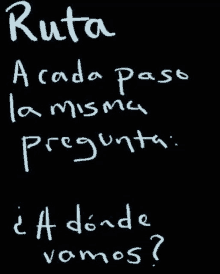 Ruta
A cada paso
la misma
pregunta:
¿A dónde
vamos?